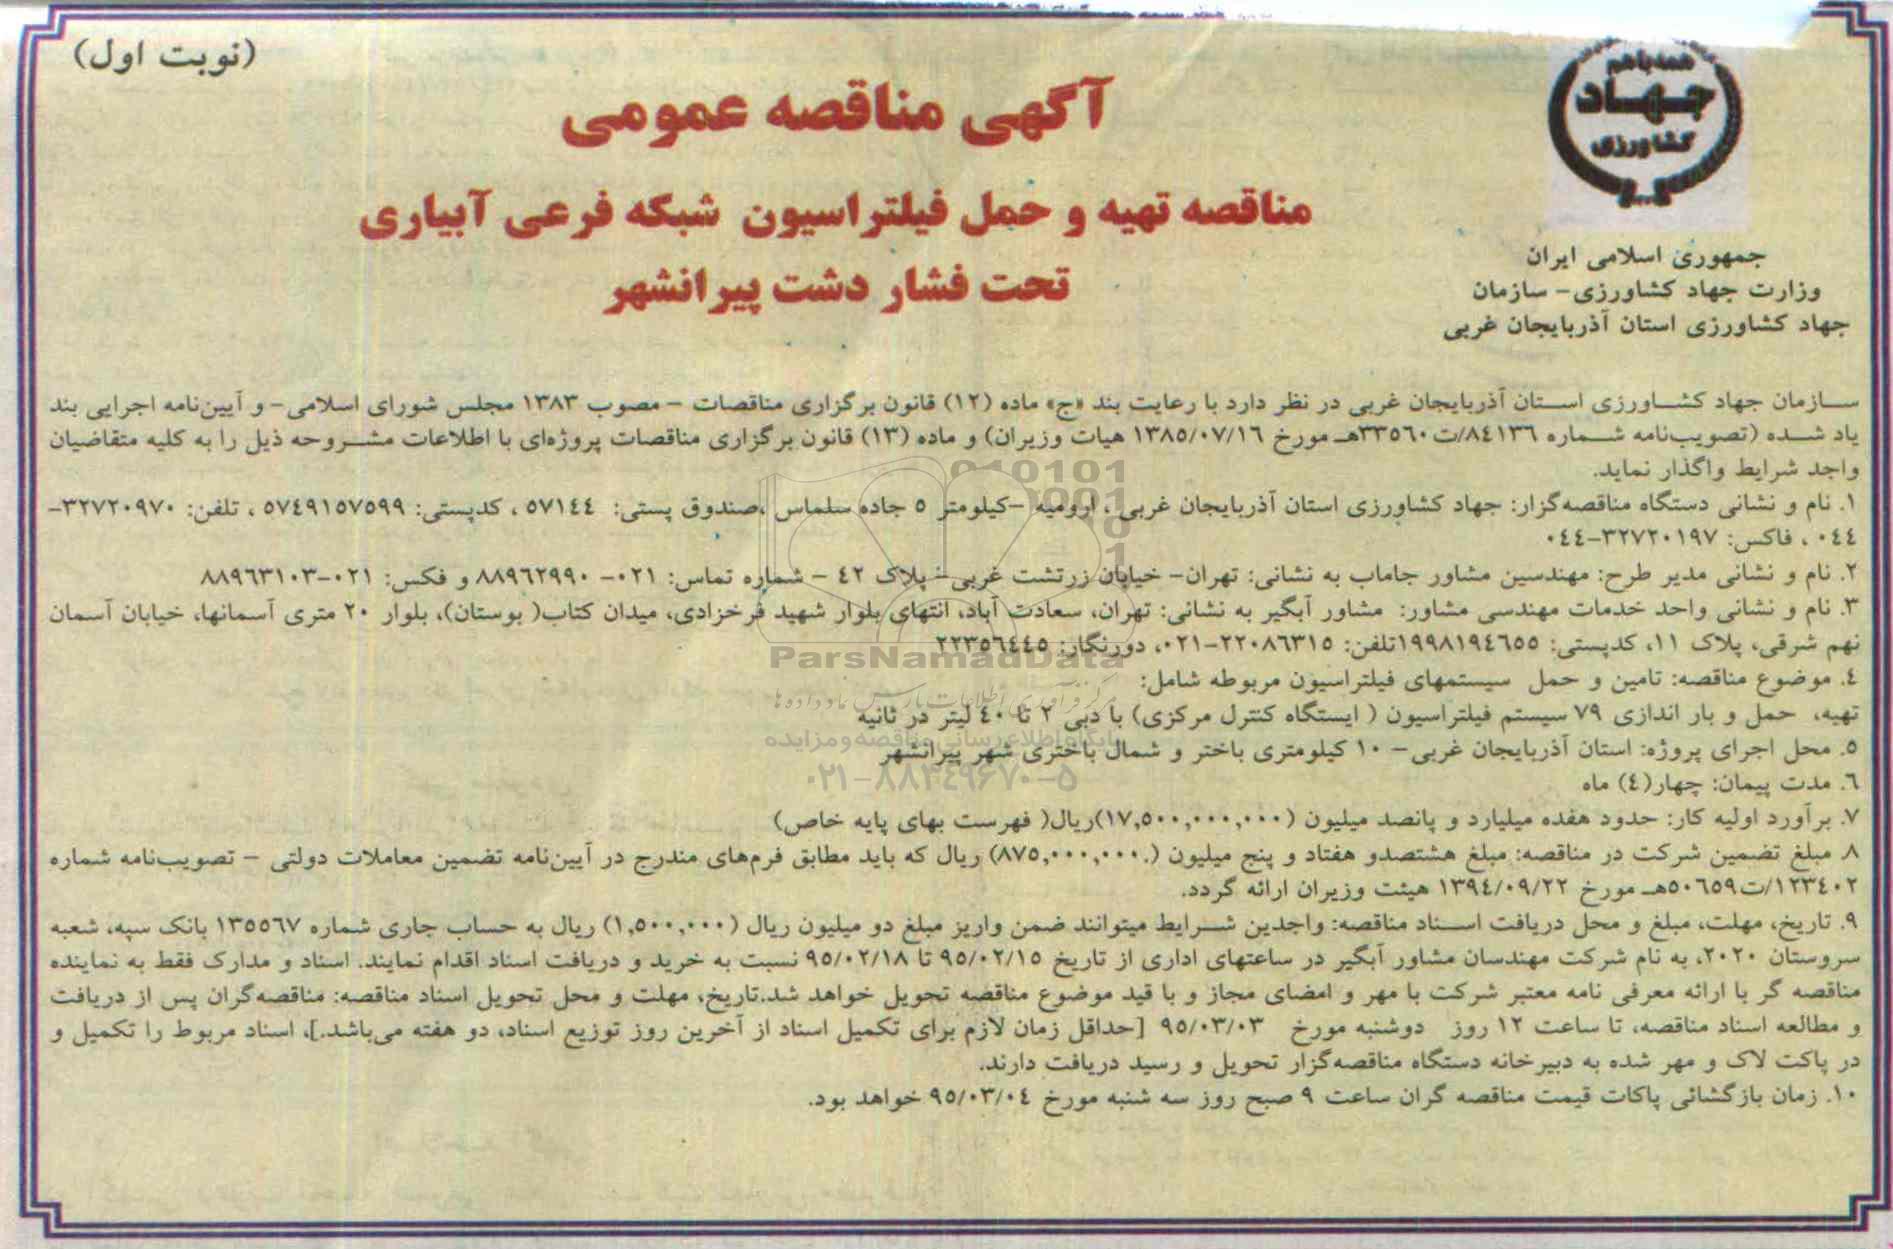 (نوبت اول)
همه با هم
جهاد
کشاورزی
جمهوری اسلامی ایران
وزارت جهاد کشاورزی- سازمان
جهاد کشاورزی استان آذربایجان غربی
آگهی مناقصه عمومی
مناقصه تهیه و حمل فیلتراسیون شبکه فرعی آبیاری
تحت فشار دشت پیرانشهر
سازمان جهاد کشاورزی استان آذربایجان غربی در نظر دارد با رعایت بند «ج» ماده (۱۲) قانون برگزاری مناقصات - مصوب ۱۳۸۳ مجلس شورای اسلامی- و آیین‌نامه اجرایی بند
یاد شده (تصویب‌نامه شماره ۸٤۱۳٦/ت۳۳۵٦۰هـ مورخ ۱۳۸۵/۰۷/۱٦ هیات وزیران) و ماده (۱۳) قانون برگزاری مناقصات پروژه‌ای با اطلاعات مشروحه ذیل را به کلیه متقاضیان
واجد شرایط واگذار نماید.
۱. نام و نشانی دستگاه مناقصه‌گزار: جهاد کشاورزی استان آذربایجان غربی ، ارومیه -کیلومتر ۵ جاده سلماس ،صندوق پستی: ۵۷۱٤٤ ، کدپستی: ۵۷٤۹۱۵۷۵۹۹ ، تلفن: ۳۲۷۲۰۹۷۰-
۰٤٤ ، فاکس: ۳۲۷۲۰۱۹۷-۰٤٤
۲. نام و نشانی مدیر طرح: مهندسین مشاور جاماب به نشانی: تهران- خیابان زرتشت غربی- پلاک ٤۲ - شماره تماس: ۰۲۱- ۸۸۹٦۲۹۹۰ و فکس: ۰۲۱-۸۸۹٦۳۱۰۳
۳. نام و نشانی واحد خدمات مهندسی مشاور: مشاور آبگیر به نشانی: تهران، سعادت آباد، انتهای بلوار شهید فرخزادی، میدان کتاب( بوستان)، بلوار ۲۰ متری آسمانها، خیابان آسمان
نهم شرقی، پلاک ۱۱، کدپستی: ۱۹۹۸۱۹٤٦۵۵تلفن: ۲۲۰۸٦۳۱۵-۰۲۱، دورنگار: ۲۲۳۵٦٤٤۵
٤. موضوع مناقصه: تامین و حمل سیستمهای فیلتراسیون مربوطه شامل:
تهیه، حمل و بار اندازی ۷۹ سیستم فیلتراسیون ( ایستگاه کنترل مرکزی) با دبی ۲ تا ٤۰ لیتر در ثانیه
۵. محل اجرای پروژه: استان آذربایجان غربی- ۱۰ کیلومتری باختر و شمال باختری شهر پیرانشهر
٦. مدت پیمان: چهار(٤) ماه
۷. برآورد اولیه کار: حدود هفده میلیارد و پانصد میلیون (۱۷,۵۰۰,۰۰۰,۰۰۰)ریال( فهرست بهای پایه خاص)
۸. مبلغ تضمین شرکت در مناقصه: مبلغ هشتصدو هفتاد و پنج میلیون (۸۷۵,۰۰۰,۰۰۰.) ریال که باید مطابق فرم‌های مندرج در آیین‌نامه تضمین معاملات دولتی - تصویب‌نامه شماره
۱۲۳٤۰۲/ت۵۰٦۵۹هـ مورخ ۱۳۹٤/۰۹/۲۲ هیئت وزیران ارائه گردد.
۹. تاریخ، مهلت، مبلغ و محل دریافت اسناد مناقصه: واجدین شرایط میتوانند ضمن واریز مبلغ دو میلیون ریال (۱,۵۰۰,۰۰۰) ریال به حساب جاری شماره ۱۳۵۵٦۷ بانک سپه، شعبه
سروستان ۲۰۲۰، به نام شرکت مهندسان مشاور آبگیر در ساعتهای اداری از تاریخ ۹۵/۰۲/۱۵ تا ۹۵/۰۲/۱۸ نسبت به خرید و دریافت اسناد اقدام نمایند. اسناد و مدارک فقط به نماینده
مناقصه گر با ارائه معرفی نامه معتبر شرکت با مهر و امضای مجاز و با قید موضوع مناقصه تحویل خواهد شد.تاریخ، مهلت و محل تحویل اسناد مناقصه: مناقصه‌گران پس از دریافت
و مطالعه اسناد مناقصه، تا ساعت ۱۲ روز دوشنبه مورخ ۹۵/۰۳/۰۳ [حداقل زمان لازم برای تکمیل اسناد از آخرین روز توزیع اسناد، دو هفته می‌باشد.]، اسناد مربوط را تکمیل و
در پاکت لاک و مهر شده به دبیرخانه دستگاه مناقصه‌گزار تحویل و رسید دریافت دارند.
۱۰. زمان بازگشائی پاکات قیمت مناقصه گران ساعت ۹ صبح روز سه شنبه مورخ ۹۵/۰۳/۰٤ خواهد بود.
ParsNamadData
پایگاه اطلاع رسانی مناقصه و مزایده
۰۲۱-۸۸۳۴۹۶۷۰-۵